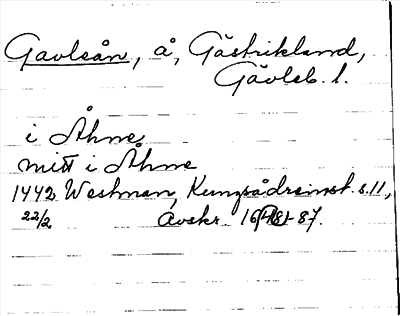 Gavleån, å, Gästrikland,
Gävleb. l.
i Åhne
mitt i Åhne
1442 Westman, Kungsådreinst. s. 11,
22/2 Avskr. 1678-87.